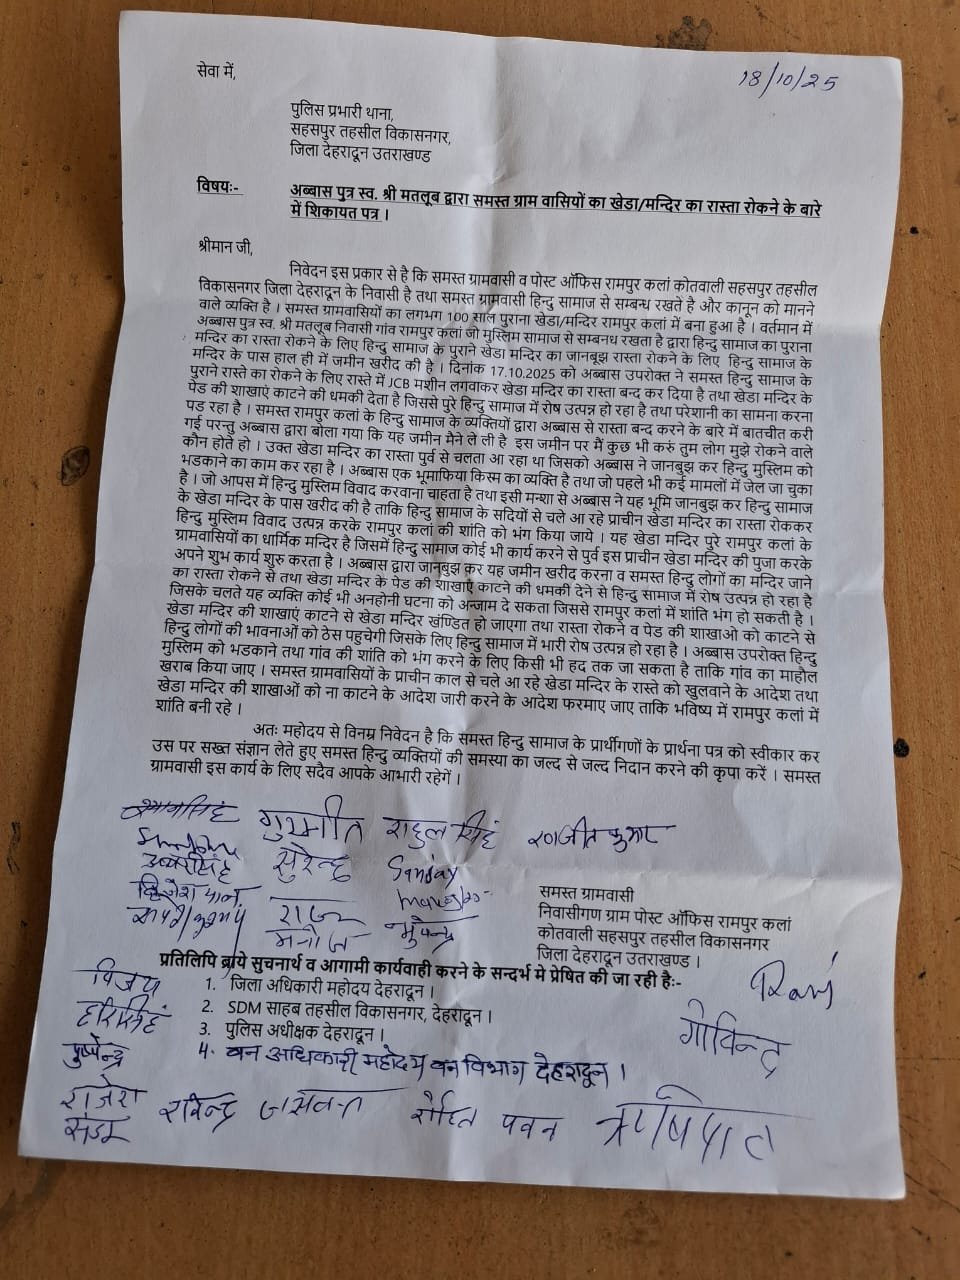 18/10/25
सेवा में,
पुलिस प्रभारी थाना,
सहसपुर तहसील विकासनगर,
जिला देहरादून उतराखण्ड
विषयः- अब्बास पुत्र स्व. श्री मतलूब द्वारा समस्त ग्राम वासियों का खेडा/मन्दिर का रास्ता रोकने के बारे
में शिकायत पत्र ।
श्रीमान जी,
निवेदन इस प्रकार से है कि समस्त ग्रामवासी व पोस्ट ऑफिस रामपुर कलां कोतवाली सहसपुर तहसील
विकासनगर जिला देहरादून के निवासी है तथा समस्त ग्रामवासी हिन्दु समाज से सम्बन्ध रखते है और कानून को मानने
वाले व्यक्ति है । समस्त ग्रामवासियों का लगभग 100 साल पुराना खेडा/मन्दिर रामपुर कलां में बना हुआ है । वर्तमान में
अब्बास पुत्र स्व. श्री मतलूब निवासी गांव रामपुर कलां जो मुस्लिम समाज से सम्बनध रखता है द्वारा हिन्दु समाज का पुराना
मन्दिर का रास्ता रोकने के लिए हिन्दु समाज के पुराने खेडा मन्दिर का जानबूझ रास्ता रोकने के लिए हिन्दु समाज के
मन्दिर के पास हाल ही में जमीन खरीद की है । दिनांक 17.10.2025 को अब्बास उपरोक्त ने समस्त हिन्दु समाज के
पुराने रास्ते का रोकने के लिए रास्ते में JCB मशीन लगवाकर खेडा मन्दिर का रास्ता बन्द कर दिया है तथा खेडा मन्दिर के
पेड की शाखाएं काटने की धमकी देता है जिससे पुरे हिन्दु समाज में रोष उत्पन्न हो रहा है तथा परेशानी का सामना करना
पड रहा है । समस्त रामपुर कलां के हिन्दु समाज के व्यक्तियों द्वारा अब्बास से रास्ता बन्द करने के बारे में बातचीत करी
गई परन्तु अब्बास द्वारा बोला गया कि यह जमीन मैने ले ली है इस जमीन पर मैं कुछ भी करुं तुम लोग मुझे रोकने वाले
कौन होते हो । उक्त खेडा मन्दिर का रास्ता पुर्व से चलता आ रहा था जिसको अब्बास ने जानबुझ कर हिन्दु मुस्लिम को
भडकाने का काम कर रहा है । अब्बास एक भूमाफिया किस्म का व्यक्ति है तथा जो पहले भी कई मामलों में जेल जा चुका
है । जो आपस में हिन्दु मुस्लिम विवाद करवाना चाहता है तथा इसी मन्शा से अब्बास ने यह भूमि जानबुझ कर हिन्दु समाज
के खेडा मन्दिर के पास खरीद की है ताकि हिन्दु समाज के सदियों से चले आ रहे प्राचीन खेडा मन्दिर का रास्ता रोककर
हिन्दु मुस्लिम विवाद उत्पन्न करके रामपुर कलां की शांति को भंग किया जाये । यह खेडा मन्दिर पुरे रामपुर कलां के
ग्रामवासियों का धार्मिक मन्दिर है जिसमें हिन्दु समाज कोई भी कार्य करने से पुर्व इस प्राचीन खेडा मन्दिर की पुजा करके
अपने शुभ कार्य शुरु करता है । अब्बास द्वारा जानबुझ कर यह जमीन खरीद करना व समस्त हिन्दु लोगों का मन्दिर जाने
का रास्ता रोकने से तथा खेडा मन्दिर के पेड की शाखाएं काटने की धमकी देने से हिन्दु समाज में रोष उत्पन्न हो रहा है
जिसके चलते यह व्यक्ति कोई भी अनहोनी घटना को अन्जाम दे सकता जिससे रामपुर कलां में शांति भंग हो सकती है ।
खेडा मन्दिर की शाखाएं काटने से खेडा मन्दिर खंण्डित हो जाएगा तथा रास्ता रोकने व पेड की शाखाओ को काटने से
हिन्दु लोगों की भावनाओं को ठेस पहुचेगी जिसके लिए हिन्दु समाज में भारी रोष उत्पन्न हो रहा है । अब्बास उपरोक्त हिन्दु
मुस्लिम को भडकाने तथा गांव की शांति को भंग करने के लिए किसी भी हद तक जा सकता है ताकि गांव का माहौल
खराब किया जाए । समस्त ग्रामवासियों के प्राचीन काल से चले आ रहे खेडा मन्दिर के रास्ते को खुलवाने के आदेश तथा
खेडा मन्दिर की शाखाओं को ना काटने के आदेश जारी करने के आदेश फरमाए जाए ताकि भविष्य में रामपुर कलां में
शांति बनी रहे ।
अतः महोदय से विनम्र निवेदन है कि समस्त हिन्दु समाज के प्रार्थीगणों के प्रार्थना पत्र को स्वीकार कर
उस पर सख्त संज्ञान लेते हुए समस्त हिन्दु व्यक्तियों की समस्या का जल्द से जल्द निदान करने की कृपा करें । समस्त
ग्रामवासी इस कार्य के लिए सदैव आपके आभारी रहेगें ।
गुरमीत राहुल सिंह रणजीत कुमार
सुरेन्द्र Sanjay
राजू
मनोज भुपेन्द्र
समस्त ग्रामवासी
निवासीगण ग्राम पोस्ट ऑफिस रामपुर कलां
कोतवाली सहसपुर तहसील विकासनगर
जिला देहरादून उतराखण्ड ।
प्रतिलिपि ब्राये सुचनार्थ व आगामी कार्यवाही करने के सन्दर्भ मे प्रेषित की जा रही हैः-
1. जिला अधिकारी महोदय देहरादून ।
2. SDM साहब तहसील विकासनगर, देहरादून ।
3. पुलिस अधीक्षक देहरादून ।
4. वन अधिकारी महोदय वन विभाग देहरादून ।
विजय
हरिसिंह
पुष्पेन्द्र
राजेश
Ravi
गोविन्द
रविन्द्र जसवन्त रोहित पवन ऋषिपाल